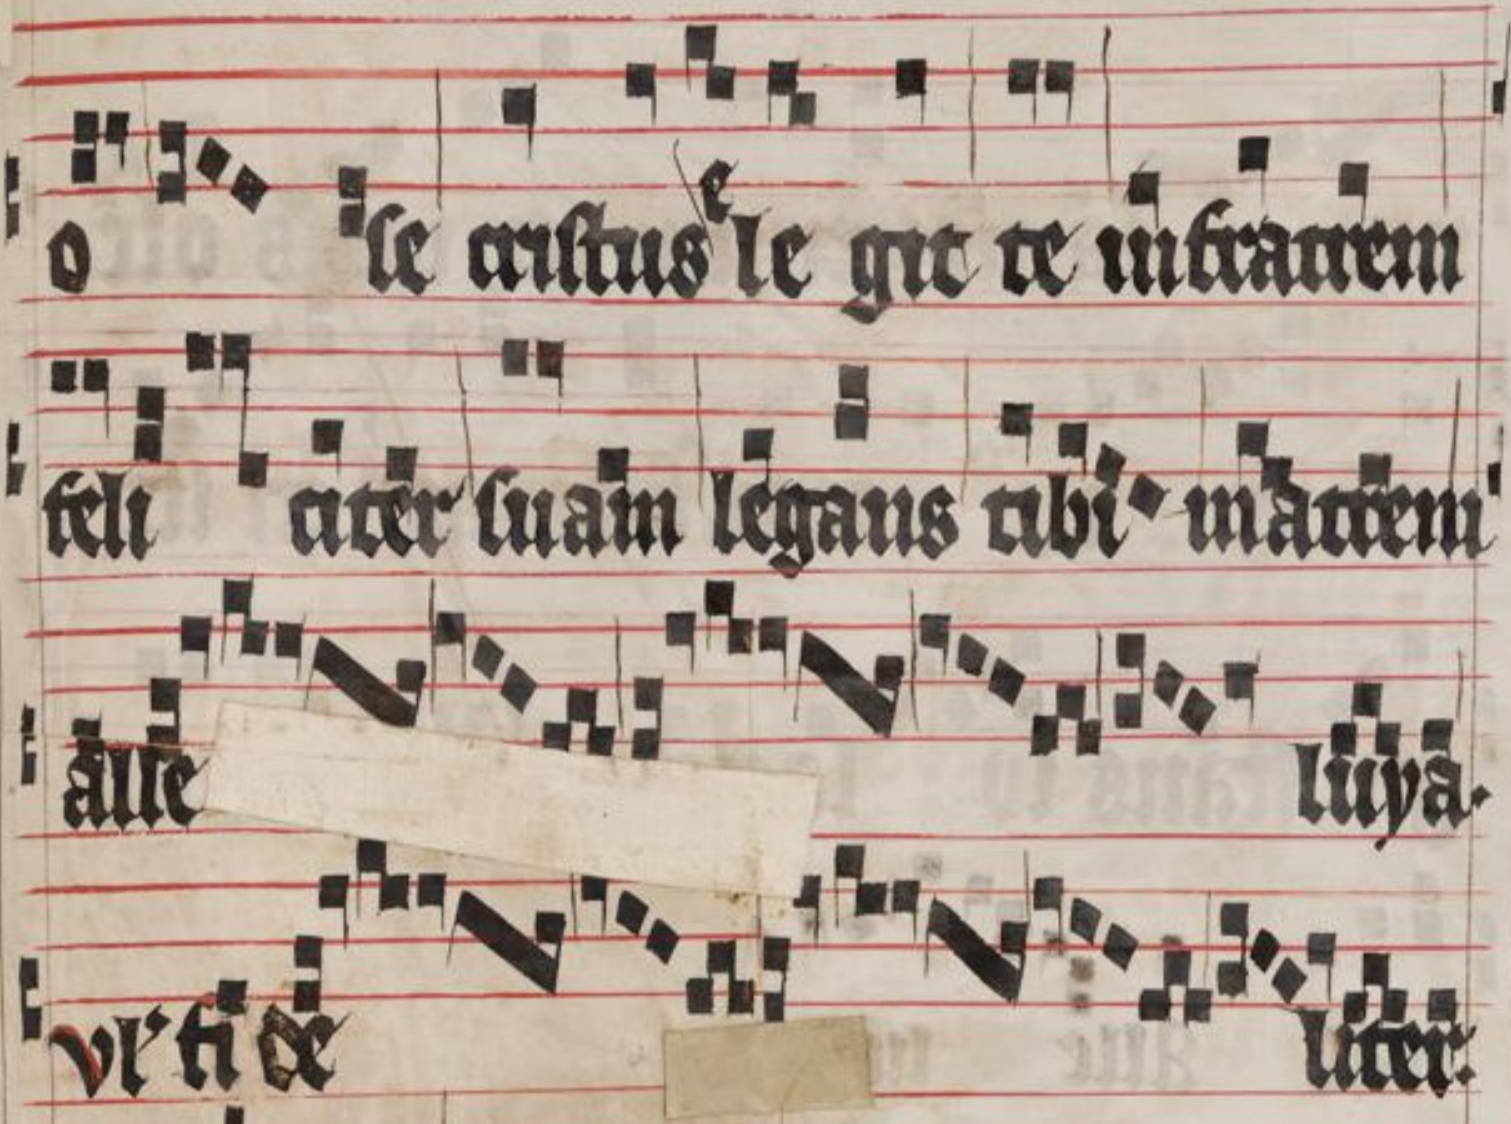 o se cristus elegit te in fratrem
feliciter suam legans tibi matrem
alleluya.
vl' fideliter.